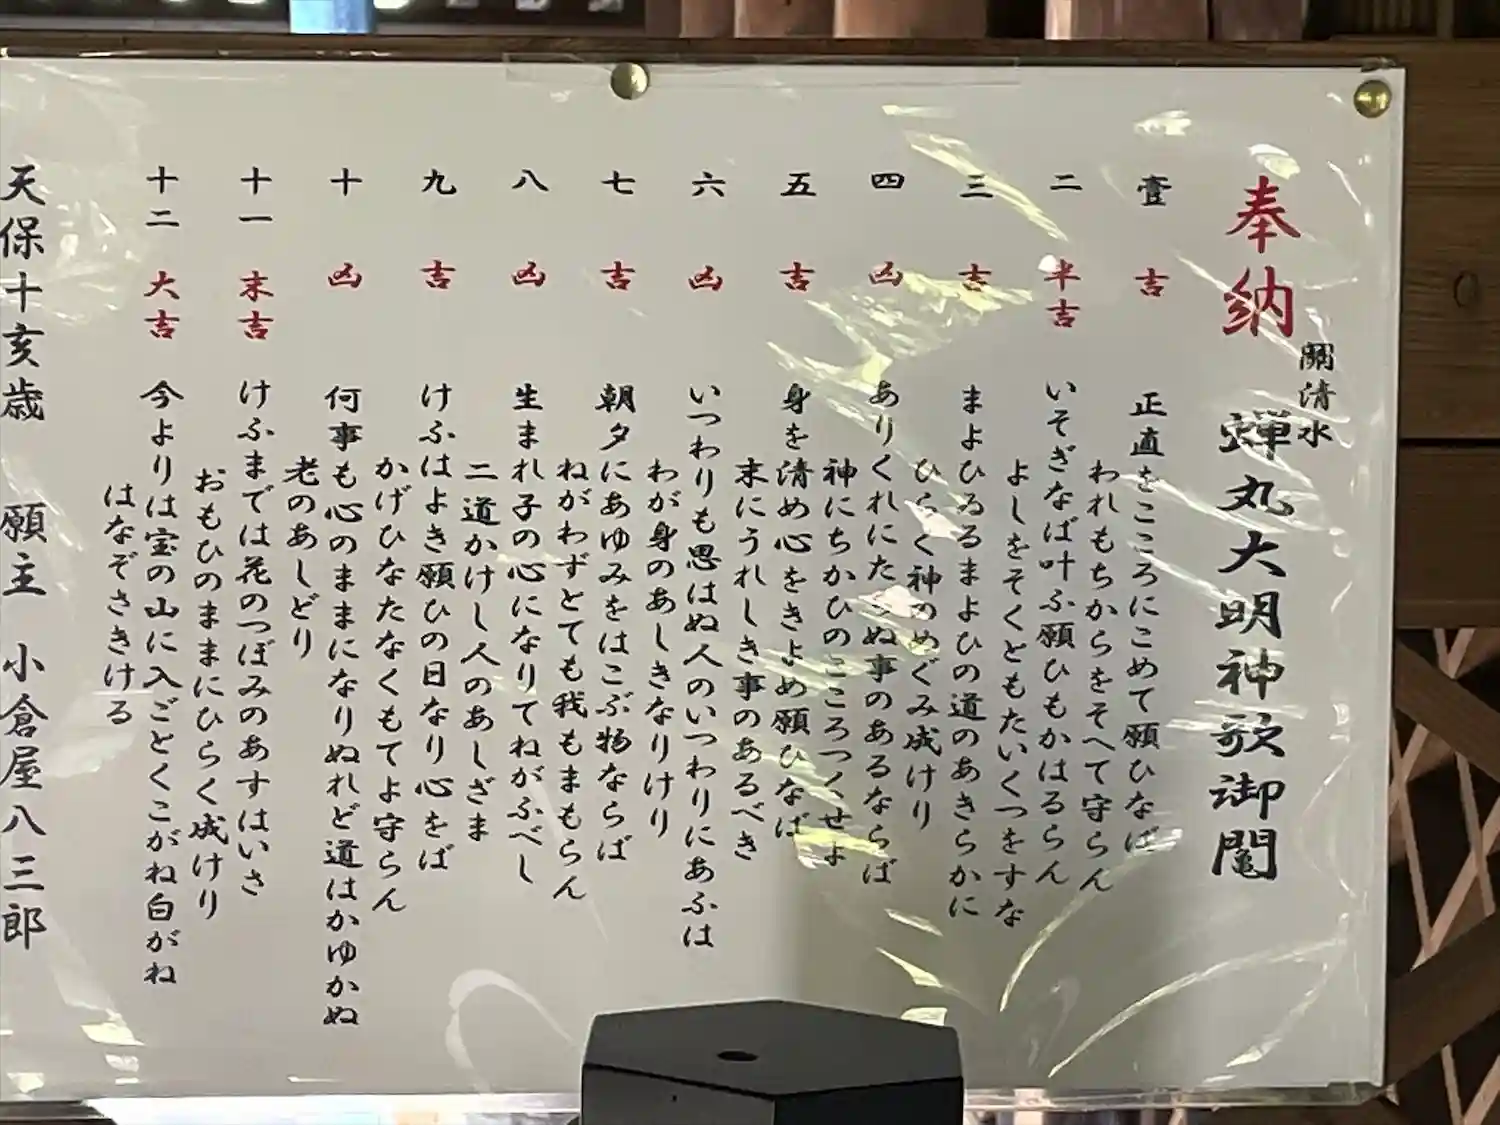 奉納
關清水
蝉丸大明神歌御閹
壹 吉 正直をこころにこめて願ひなば
われもちからをそへて守らん
二 半吉 いそぎなば叶ふ願ひもかはるらん
よしをそくともたいくつをすな
三 吉 まよひゐるまよひの道のあきらかに
ひらく神のめぐみ成けり
四 凶 ありくれにた ぬ事のあるならば
神にちかひのこころつくせよ
五 吉 身を清め心をきよめ願ひなば
末にうれしき事のあるべき
六 凶 いつわりも思はぬ人のいつわりにあふは
わが身のあしきなりけり
七 吉 朝夕にあゆみをはこぶ物ならば
ねがわずとても我もまもらん
八 凶 生まれ子の心になりてねがふべし
二道かけし人のあしざま
九 吉 けふはよき願ひの日なり心をば
かげひなたなくもてよ守らん
十 凶 何事も心のままになりぬれど道はかゆかぬ
老のあしどり
十一 末吉 けふまでは花のつぼみのあすはいさ
おもひのままにひらく成けり
十二 大吉 今よりは宝の山に入ごとくこがね白がね
はなぞさきける
天保十亥歳 願主 小倉屋八三郎